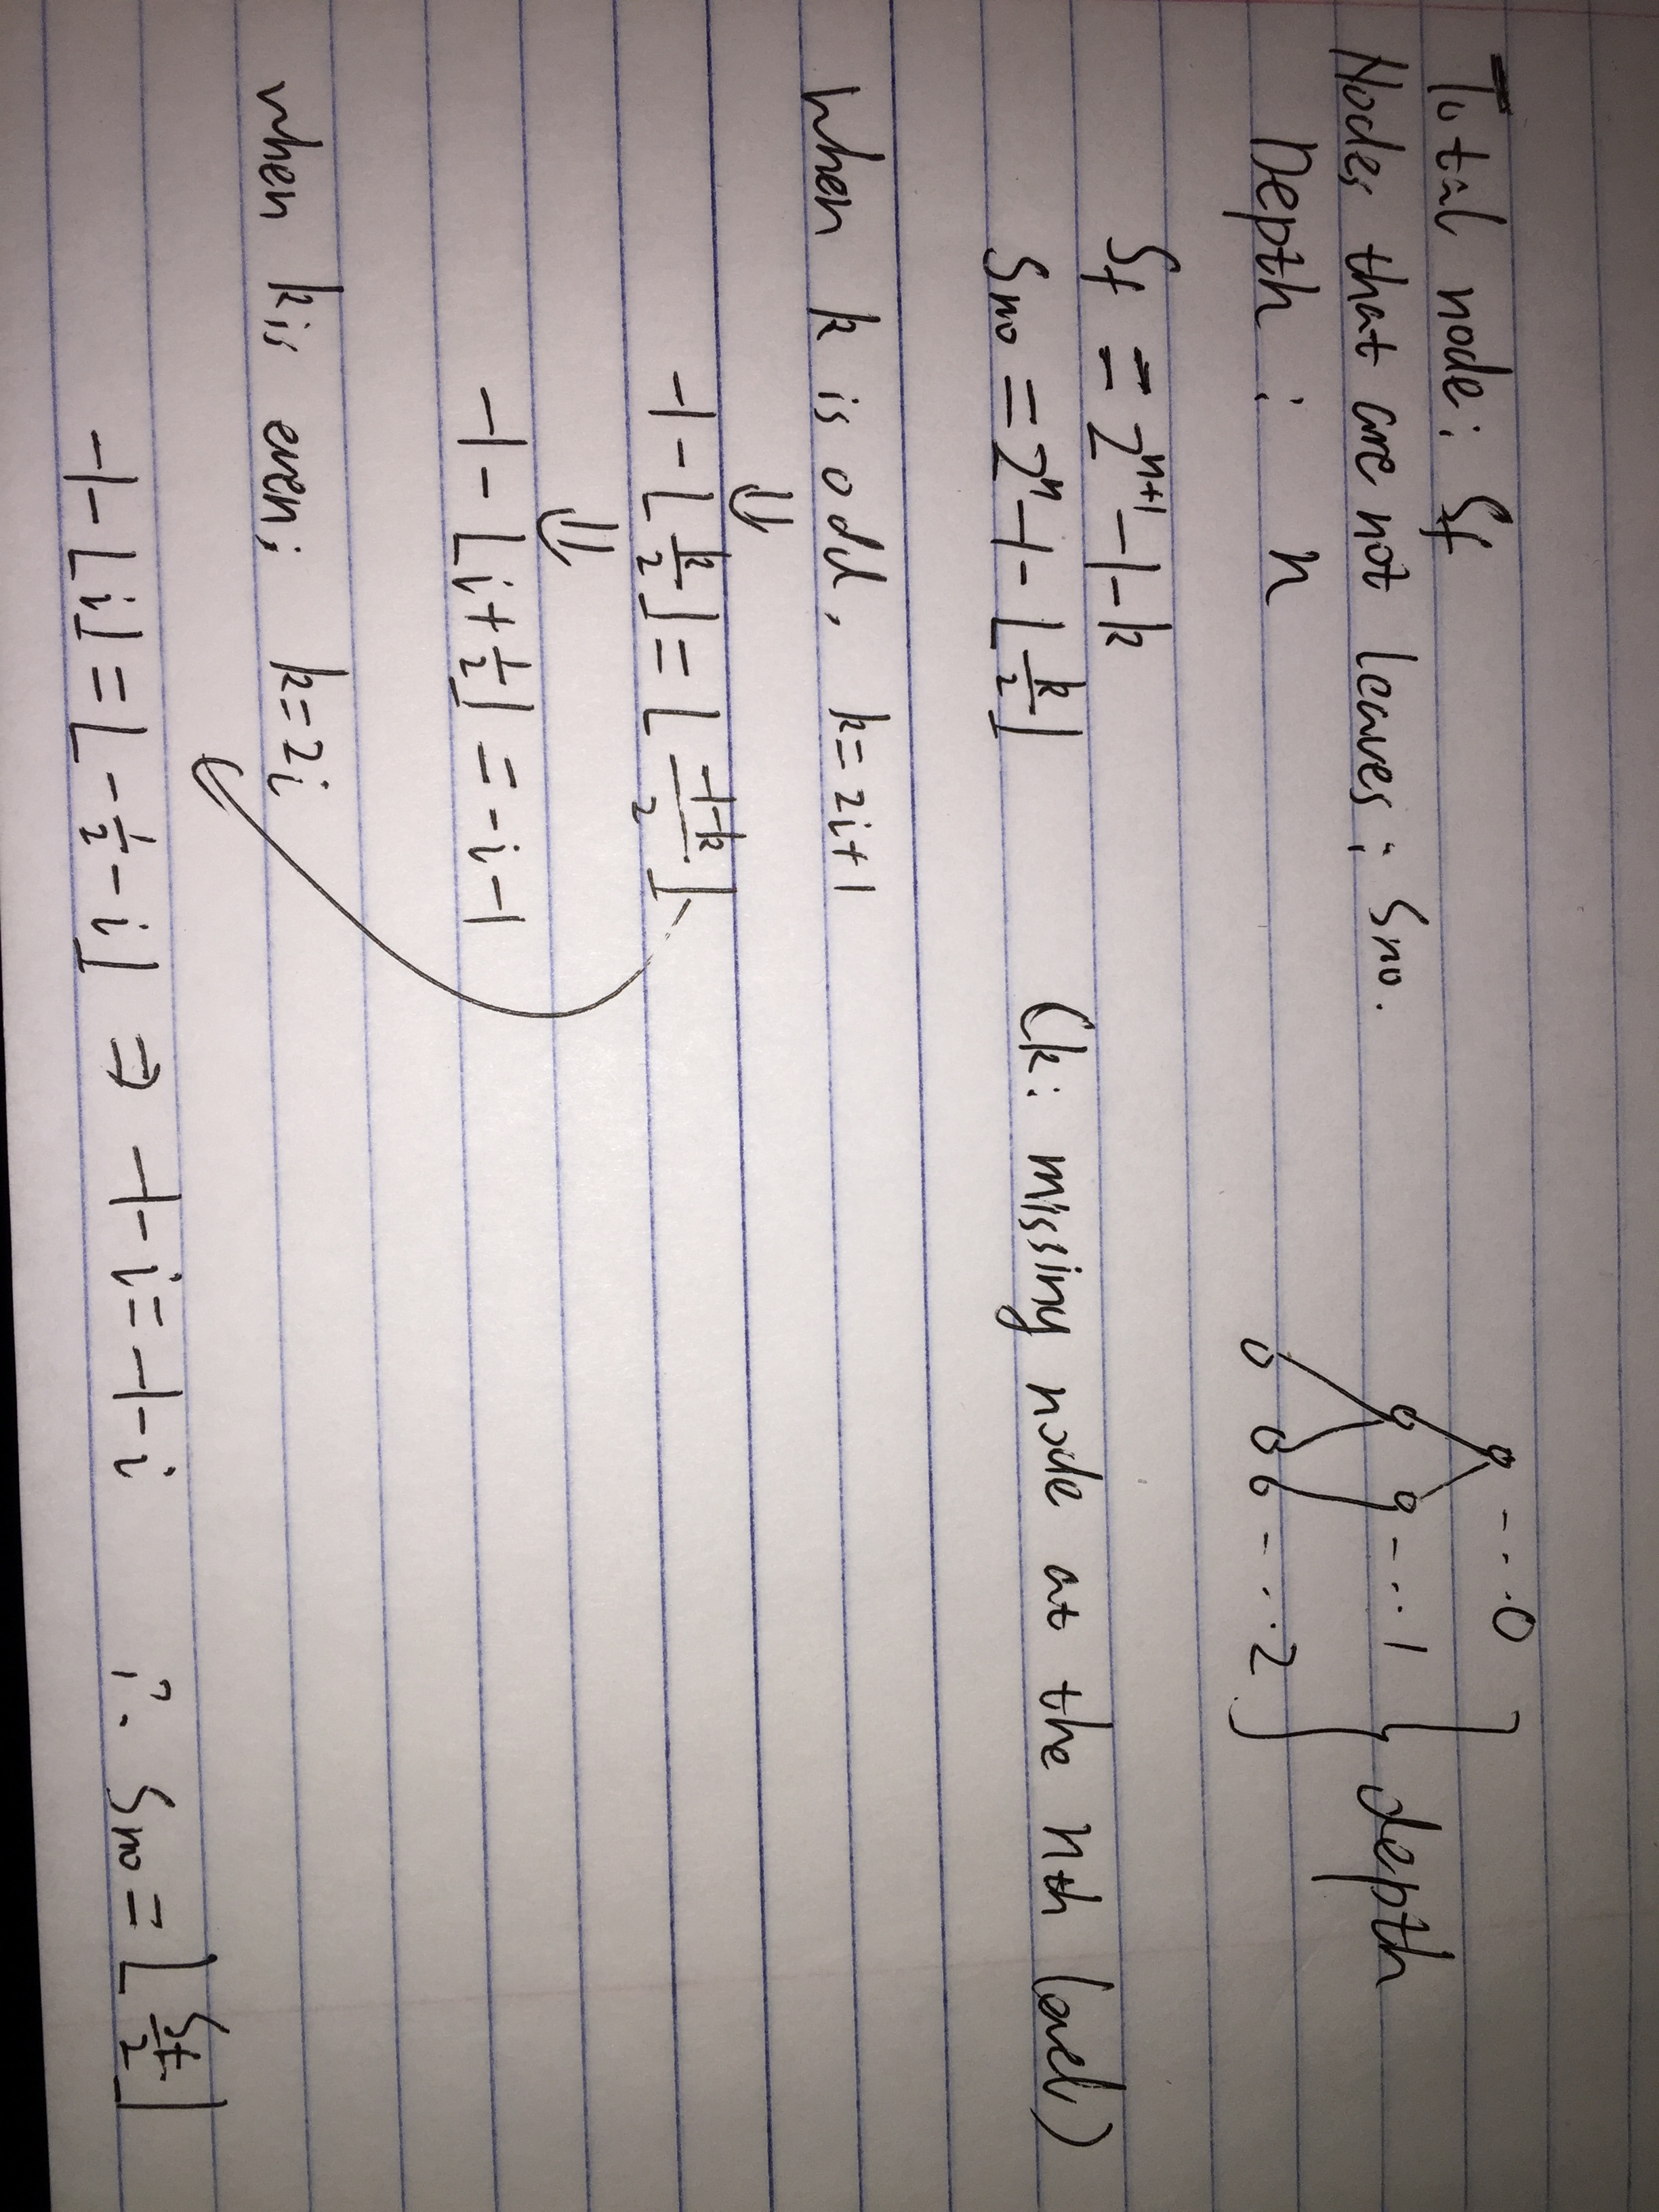 Total node: Sf
Nodes that are not leaves: Sno.
Depth: n
---0
---1
---2
depth
Sf = 2^{n+1}-1-k
Sno = 2^n-1-⌊k/2⌋ (k: missing node at the nth level)
When k is odd, k=2i+1
⇓
-1-⌊k/2⌋=⌊(-1-k)/2⌋
⇓
-1-⌊i+1/2⌋ = -i-1
when k is even; k=2i
-1-⌊i⌋=⌊-1/2-i⌋ ⇒ -1-i=-1-i ∴ Sno=⌊Sf/2⌋